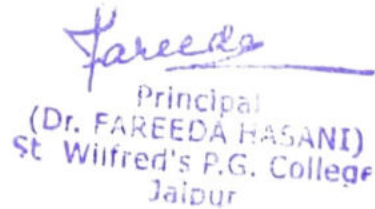 Fareeda
Principal
(Dr. FAREEDA HASANI)
St Wilfred's P.G. College
Jaipur